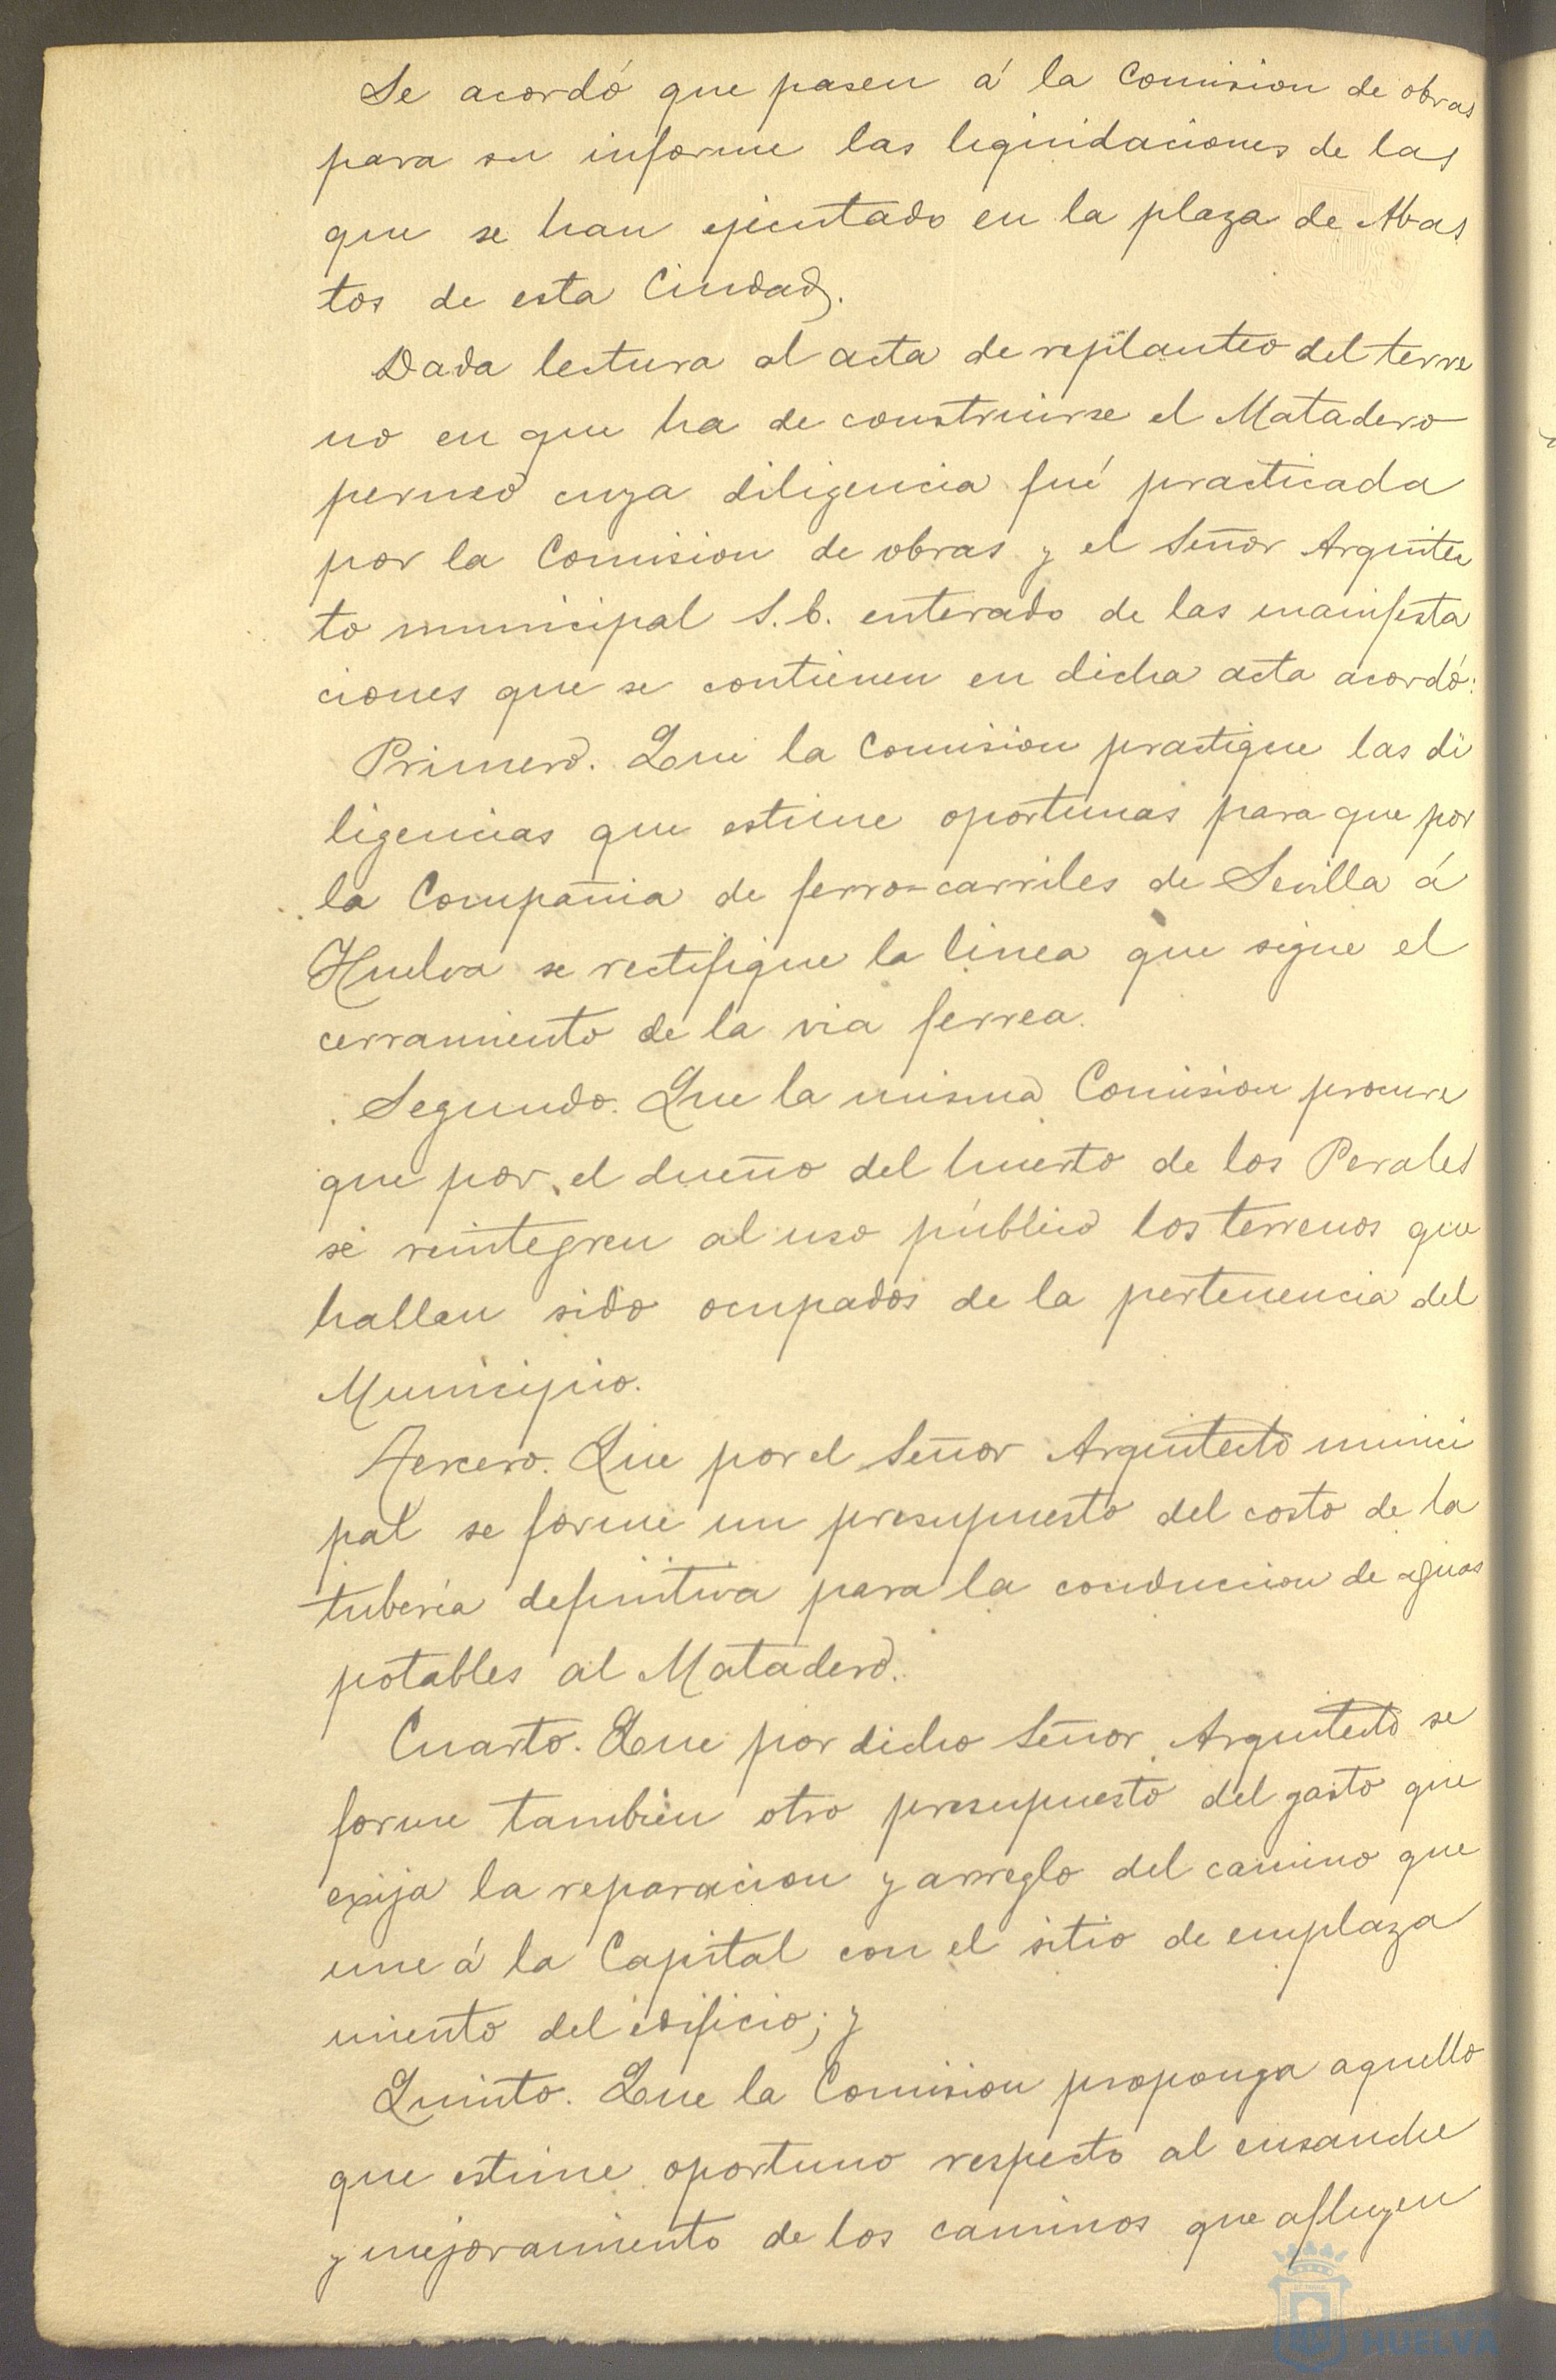 Se acordó que pasen á la Comision de obras
para su informe las liquidaciones de las
que se han ejecutado en la plaza de Abas
tos de esta Ciudad.
Dada lectura al acta de replanteo del terre
no en que ha de construirse el Matadero
per cuya diligencia fué practicada
por la Comision de obras y el Señor Arquitec
to municipal S. E. enterado de las manifesta
ciones que se contienen en dicha acta acordó:
Primero. Que la Comision practique las di
ligencias que estime oportunas para que por
la Compañia de ferro-carriles de Sevilla á
Huelva se rectifique la linea que sigue el
cerramiento de la via ferrea.
Segundo. Que la misma Comision procure
que por el dueño del huerto de los Perales
se reintegren al uso público los terrenos que
hallan sido ocupados de la pertenencia del
Municipio.
Tercero. Que por el Señor Arquitecto munici
pal se forme un presupuesto del costo de la
tuberia definitiva para la conduccion de aguas
potables al Matadero.
Cuarto. Que por dicho Señor Arquitecto se
forme tambien otro presupuesto del gasto que
exija la reparacion y arreglo del camino que
une á la Capital con el sitio de emplaza
miento del edificio; y
Quinto. Que la Comision proponga aquello
que estime oportuno respecto al ensanche
y mejoramiento de los caminos que afluyen
HUELVA